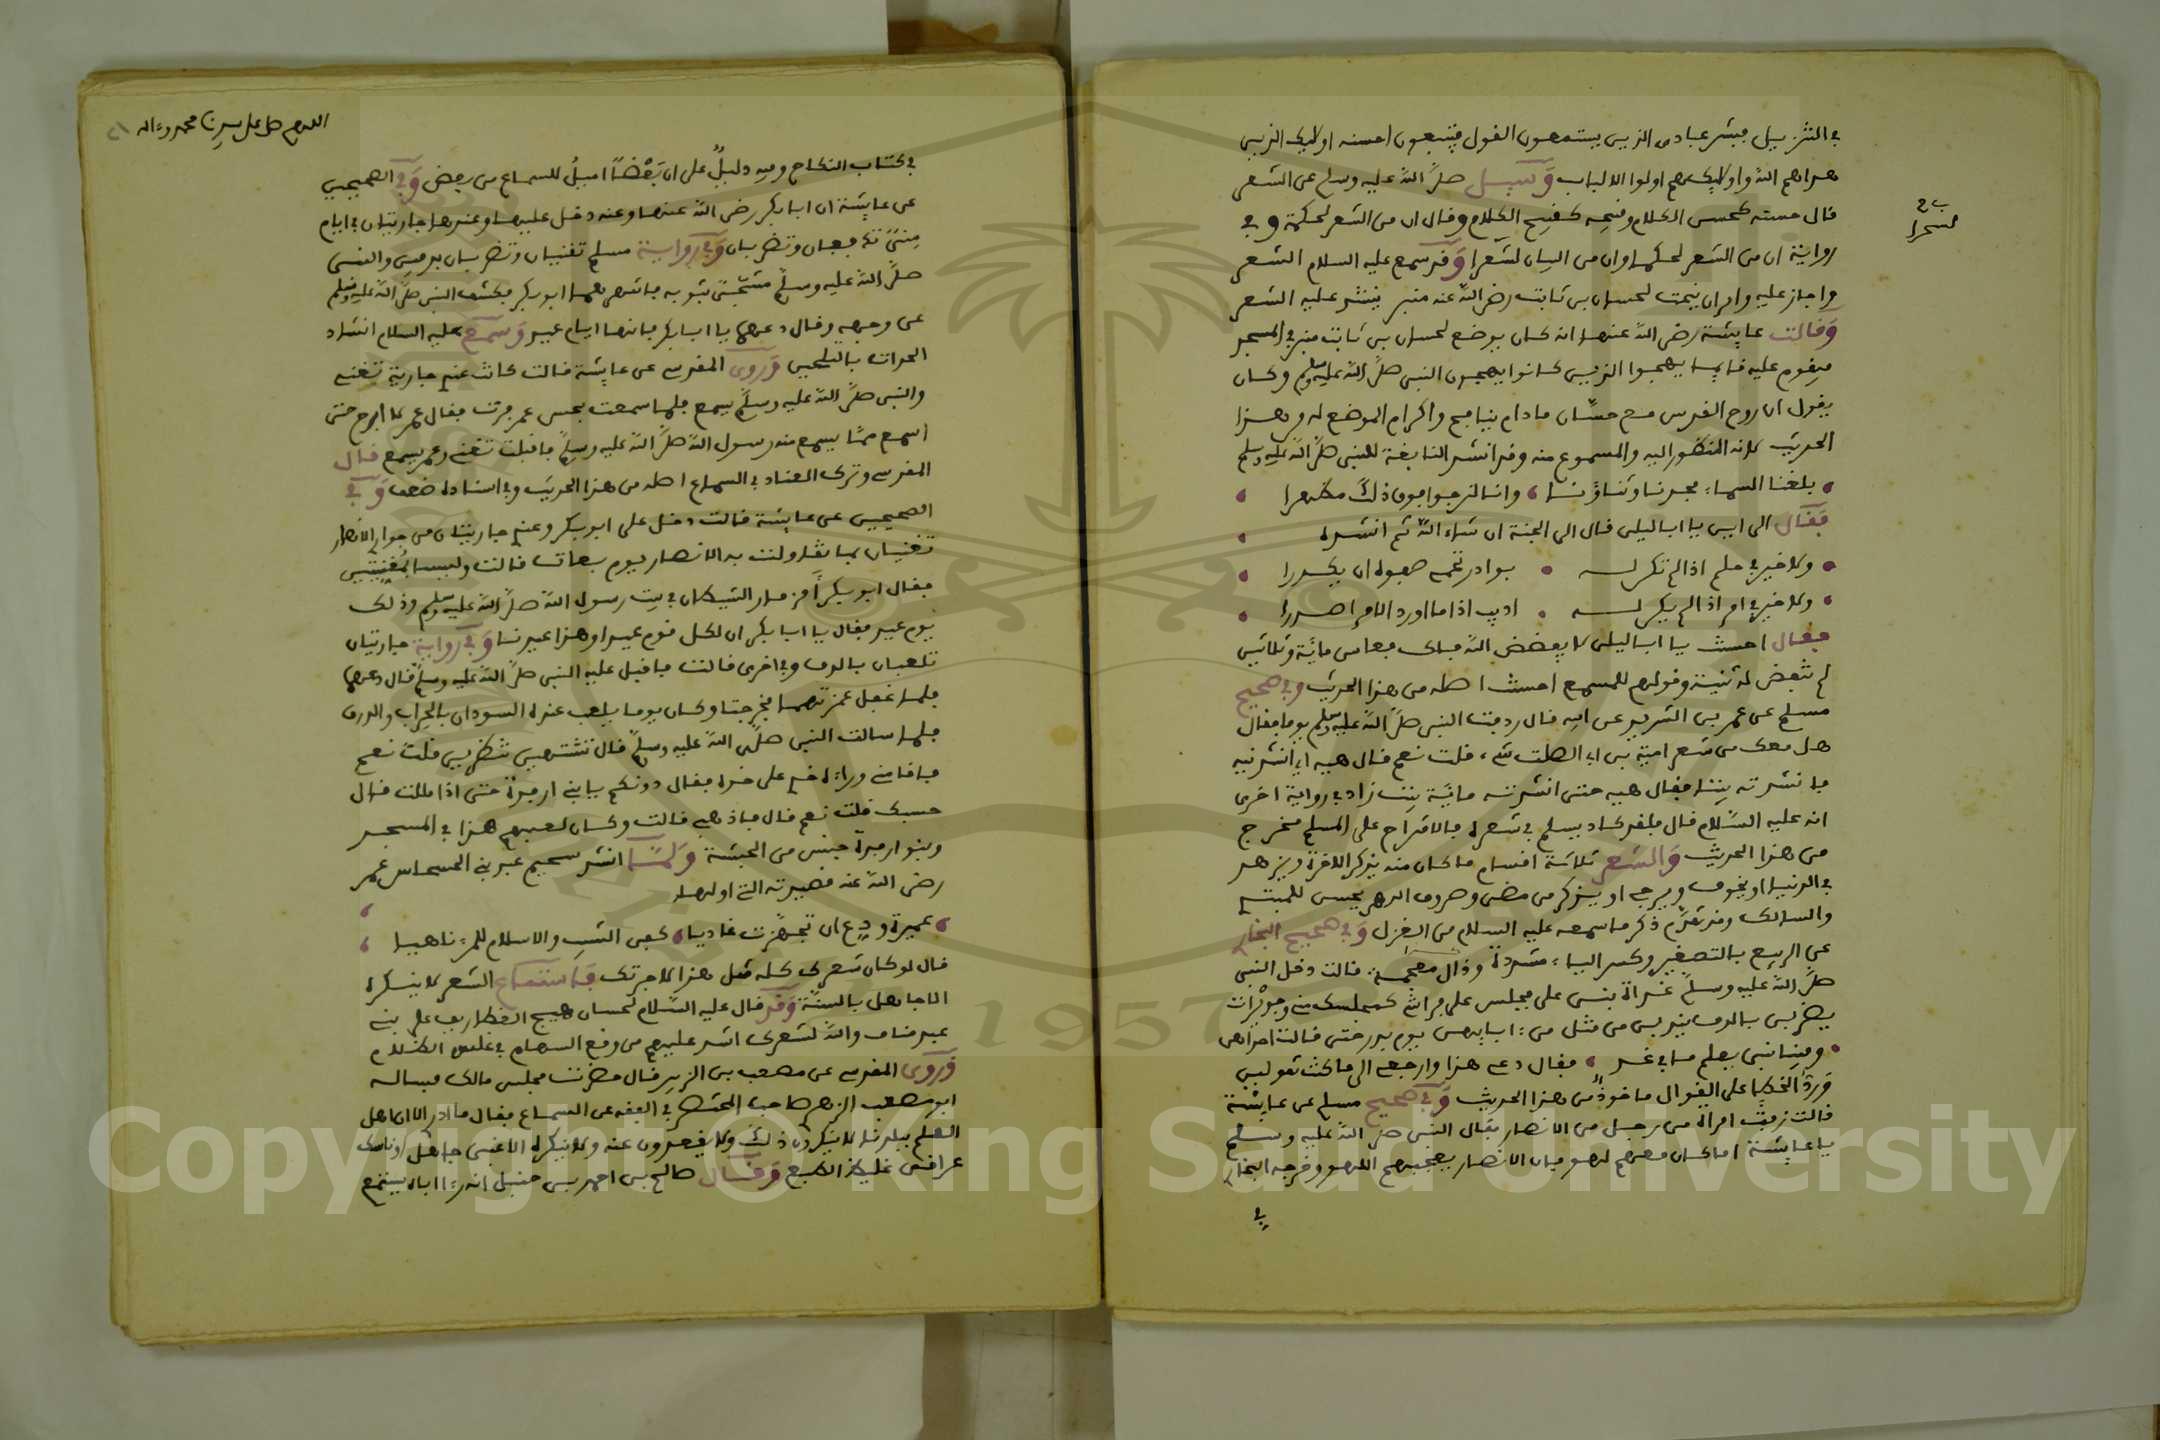 في التنزيل فبشر عبادي الذين يستمعون القول فيتبعون احسنه اولايك الذين
هداهم الله واولايك هم اولوا الالباب وسيل صلى الله عليه وسلم عن الشعر
فال حسنه كحسن الكلام وقبحه كقبيح الكلام وفال ان من الشعر لحكمة وفي
رواية ان من الشعر لحكما وان من البيان لشعرا وقد سمع عليه السلام الشعر
لسحرا
واجاز عليه وامر ان يثبت لحسان بن ثابت رضي الله عنه منبر ينشد عليه الشعر
وقالت عايشة رضي الله عنها انه كان يوضع لحسان بن ثابت منبر في المسجد
فيقوم عليه قايما يهجوا الذين كانوا يهجون النبي صلى الله عليه وسلم وكان
يقول ان روح القدس مع حسان ما دام ينافح واكرام الموضع له وهذا
الحديث لانه المنظور اليه والمسموع منه وقد انشد النابغة للنبي صلى الله عليه وسلم
بلغنا السماء مجدنا وثناؤنا وانا لنرجوا فوق ذلك مظهرا
فقال الى اين يا ابا ليلى قال الى الجنة ان شاء الله ثم انشده
ولا خير في حلم اذا لم تكن له بوادر تحمي صفوه ان يكدرا
ولا خير في امر اذا لم يكن له اديب اذا ما اورد الامر اصدرا
فقال احسنت يا ابا ليلى لا يفضض الله فاك فعاش مائة وثلاثين
لم تنفض له ثنية وقولهم للمسمع احسنت اصله من هذا الحديث وفي صحيح
مسلم عن عمر بن الشريد عن ابيه قال ردفت النبي صلى الله عليه وسلم يوما فقال
هل معك من شعر امية بن ابي الصلت شيء قلت نعم قال هيه اي انشدنيه
فانشدته بيتا فقال هيه حتى انشدته مائة بيت زاد في رواية اخرى
انه عليه السلام قال فلقد كاد يسلم في شعره فالاقتراح على المسمع مخرج
من هذا الحديث والشعر ثلاثة اقسام ما كان منه يذكر الاخرة ويزهد
في الدنيا او يخوف ويرجي او يذكر من مضى وصروف الدهر يحسن للمبتدي
والسالك وقد تقدم ذكر ما سمعه عليه السلام من الغزل وفي صحيح البخاري
عن الربيع بالتصغير وكسر الياء مشددة وذال معجمة قالت دخل النبي
صلى الله عليه وسلم غداة بني علي فجلس على فراشي كمجلسك مني وجويرات
يضربن بالدف يندبن من قتل من ءابايهن يوم بدر حتى قالت احداهن
وفينا نبي يعلم ما في غد فقال دعي هذا وارجعي الى ما كنت تقولين
ورد الخطا على القوال ماخوذ من هذا الحديث وفي صحيح مسلم عن عايشة
قالت زفت امراة من رجل من الانصار فقال النبي صلى الله عليه وسلم
يا عايشة اما كان معهم لهو فان الانصار يعجبهم اللهو وخرجه البخاري
في
اللهم صل على سيدنا محمد وءاله
في كتاب النكاح وفيه دليل على ان بعضا اميل للسماع من بعض وفي الصحيحين
عن عايشة ان ابا بكر رضي الله عنها وعنه دخل عليها وعندها جاريتان في ايام
منى تدففان وتضربان وفي رواية مسلم تغنيان وتضربان بدفين والنبي
صلى الله عليه وسلم متسجى بثوبه فانتهرهما ابو بكر فكشف النبي صلى الله عليه وسلم
عن وجهه وقال دعهما يا ابا بكر فانها ايام عيد وسمع عليه السلام انشاد
الحداة بالتلحين وروى المقدسي عن عايشة قالت كانت عندي جارية تغني
والنبي صلى الله عليه وسلم يسمع فلما سمعت بحس عمر فرت فقال عمر لا ابرح حتى
اسمع مما يسمع منه رسول الله صلى الله عليه وسلم فاقبلت تغني وعمر يسمع قال
المقدسي وترك العناد في السماع اصله من هذا الحديث وفي اسناده ضعف وفي
الصحيحين عن عايشة قالت دخل علي ابو بكر وعندي جاريتان من جوار الانصار
تغنيان بما تقاولت به الانصار يوم بعاث قالت وليستا بمغنيتين
فقال ابو بكر امزمار الشيطان في بيت رسول الله صلى الله عليه وسلم وذلك
يوم عيد فقال يا ابا بكر ان لكل قوم عيدا وهذا عيدنا وفي رواية جاريتان
تلعبان بالدف وفي اخرى قالت فاقبل عليه النبي صلى الله عليه وسلم قال دعهما
فلما غفل غمزتهما فخرجتا وكان يوما يلعب عنده السودان بالحراب والدرق
فلما سالت النبي صلى الله عليه وسلم قال تشتهين تنظرين قلت نعم
فاقامني وراءه خدي على خده فقال دونكم يا بني ارفدة حتى اذا مللت قال
حسبك قلت نعم قال فاذهبي قالت وكان لعبهم هذا في المسجد
وبنو ارفدة جنس من الحبشة ولما انشد سحيم عبد بني الحسحاس عمر
رضي الله عنه قصيدته التي اولها
عميرة ودع ان تجهزت غاديا كفى الشيب والاسلام للمرء ناهيا
قال لو كان شعرك كله مثل هذا لاجزتك فاستماع الشعر لا ينكره
الا جاهل بالسنة وقد قال عليه السلام لحسان هيج الغطاريف على بني
عبد مناف والله لشعرك اشد عليهم من وقع السهام في غلس الظلام
وروى المقدسي عن مصعب بن الزبير قال حضرت مجلس مالك فساله
ابو مصعب الزهري صاحب المختصر في الفقه عن السماع فقال ما ادري الا ان اهل
العلم ببلدنا لا ينكرون ذلك ولا يقعدون عنه ولا ينكره الا غبي جاهل او ناسك
عراقي غليظ الطبع وقال صالح بن احمد بن حنبل انه رءا اباه يتسمع